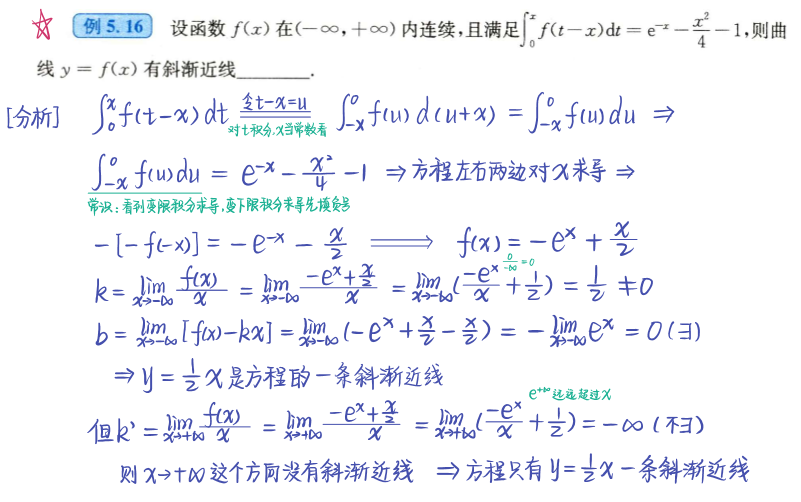 例5.16 设函数 f(x) 在(-∞,+∞) 内连续,且满足∫₀ˣ f(t-x)dt = e⁻ˣ - x²/4 - 1,则曲
线 y = f(x) 有斜渐近线________.
[分析] ∫₀ˣ f(t-x)dt ═(令t-x=u)═ ∫₋ₓ⁰ f(u)d(u+x) = ∫₋ₓ⁰ f(u)du ⇒
对t积分,x当常数看
∫₋ₓ⁰ f(u)du = e⁻ˣ - x²/4 - 1 ⇒方程左右两边对x求导⇒
常识:看到变限积分求导,变下限积分求导先填负号
-[-f(-x)] = -e⁻ˣ - x/2 ⟹ f(x) = -eˣ + x/2
k = lim(x→-∞) f(x)/x = lim(x→-∞) (-eˣ + x/2)/x = lim(x→-∞) (-eˣ/x + 1/2) = 1/2 ≠ 0
0/-∞ = 0
b = lim(x→-∞) [f(x)-kx] = lim(x→-∞) (-eˣ + x/2 - x/2) = -lim(x→-∞) eˣ = 0 (∃)
⇒ y = 1/2 x 是方程的一条斜渐近线
e⁺∞ 远远超过x
但k' = lim(x→+∞) f(x)/x = lim(x→+∞) (-eˣ + x/2)/x = lim(x→+∞) (-eˣ/x + 1/2) = -∞ (不∃)
则 x→+∞ 这个方向没有斜渐近线 ⇒方程只有 y = 1/2 x 一条斜渐近线